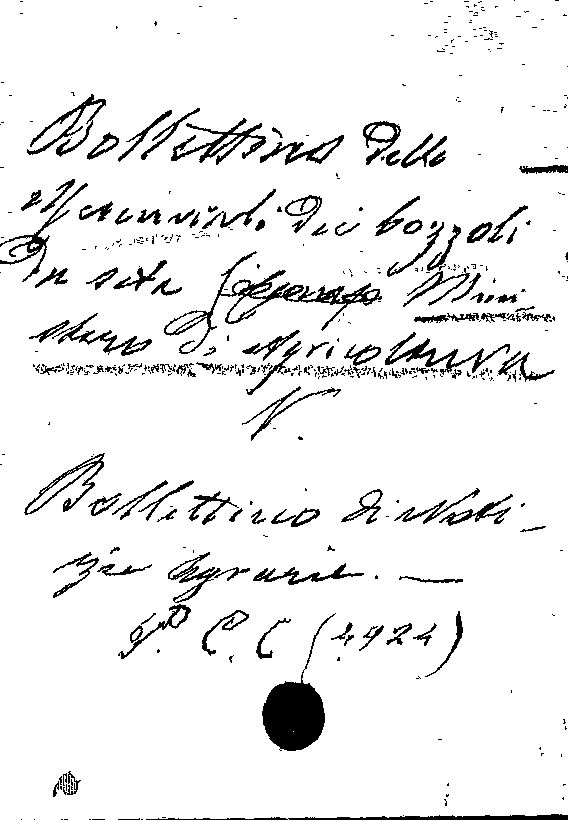 Bollettino delle
dei bozzoli
in seta Mini
stero di Agricoltura
V.
Bollettino di Noti-
zie Agrarie. —
P. C. C (4924)